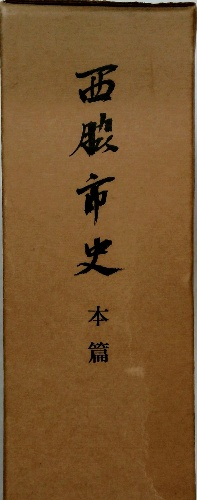 西脇市史
本篇